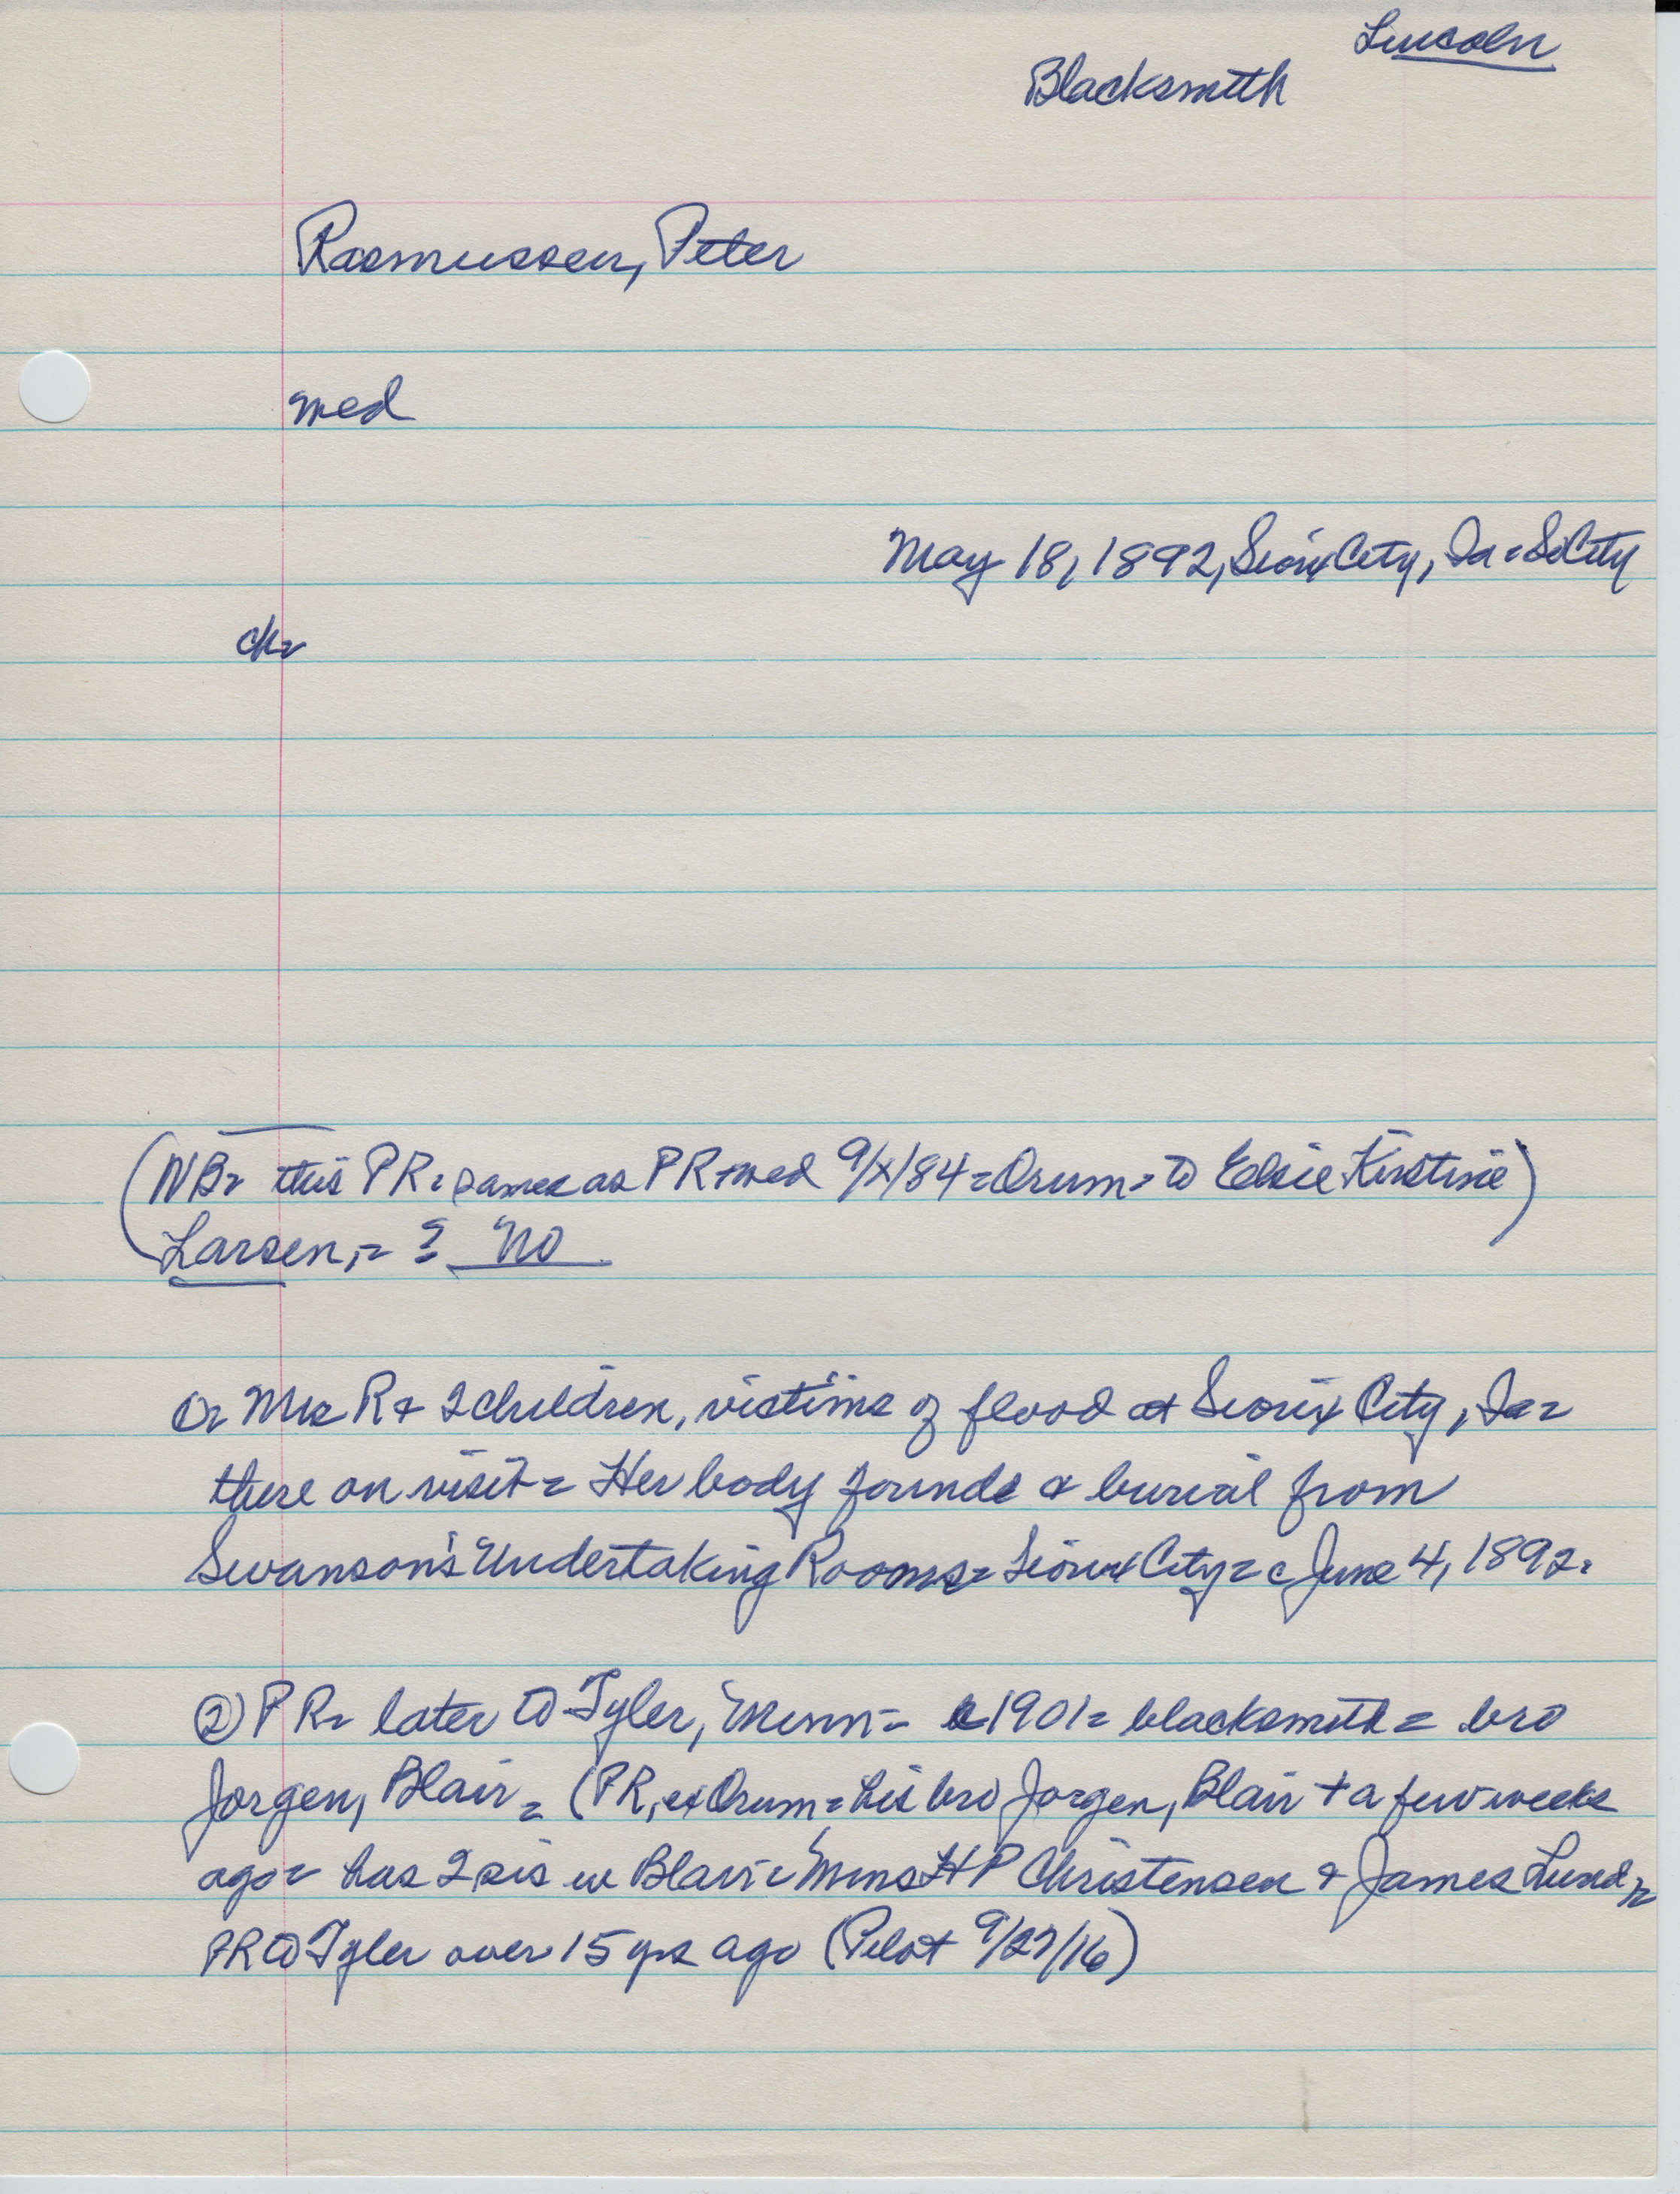 Lincoln
Blacksmith
Rasmussen, Peter
med
May 18, 1892, Sioux City, Ia = SoCity
ch=
(NB= this PR = same as PR + med 9/x/84 = Orum = to Elsie Kirstine)
Larsen, = ? No
① Mrs R + 2 children, victims of flood at Sioux City, Ia =
there on visit = Her body found & burial from
Swanson's Undertaking Rooms = Sioux City = c June 4, 1892.
② PR = later to Tyler, Minn = c1901 = blacksmith = bro
Jorgen, Blair = (PR, ex Orum = his bro Jorgen, Blair + a few weeks
ago = has 2 sis in Blair = Mms H P Christensen & James Lund =
PR to Tyler over 15 yrs ago (Pilot 9/27/16)